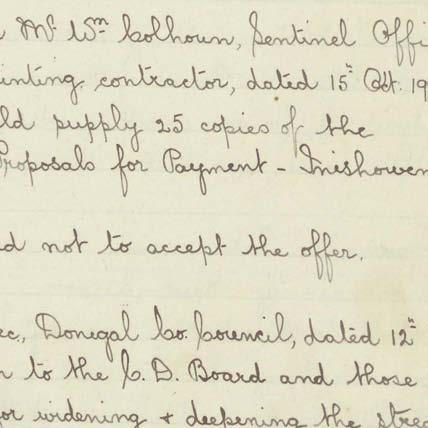 Mr. Wm. Colhoun, Sentinel Offi
inting contractor, dated 15th Oct. 19
ld supply 25 copies of the
Proposals for Payment - Inishowen
d not to accept the offer.
ec., Donegal Co. Council, dated 12th
n to the C. D. Board and those
for widening + deepening the strea